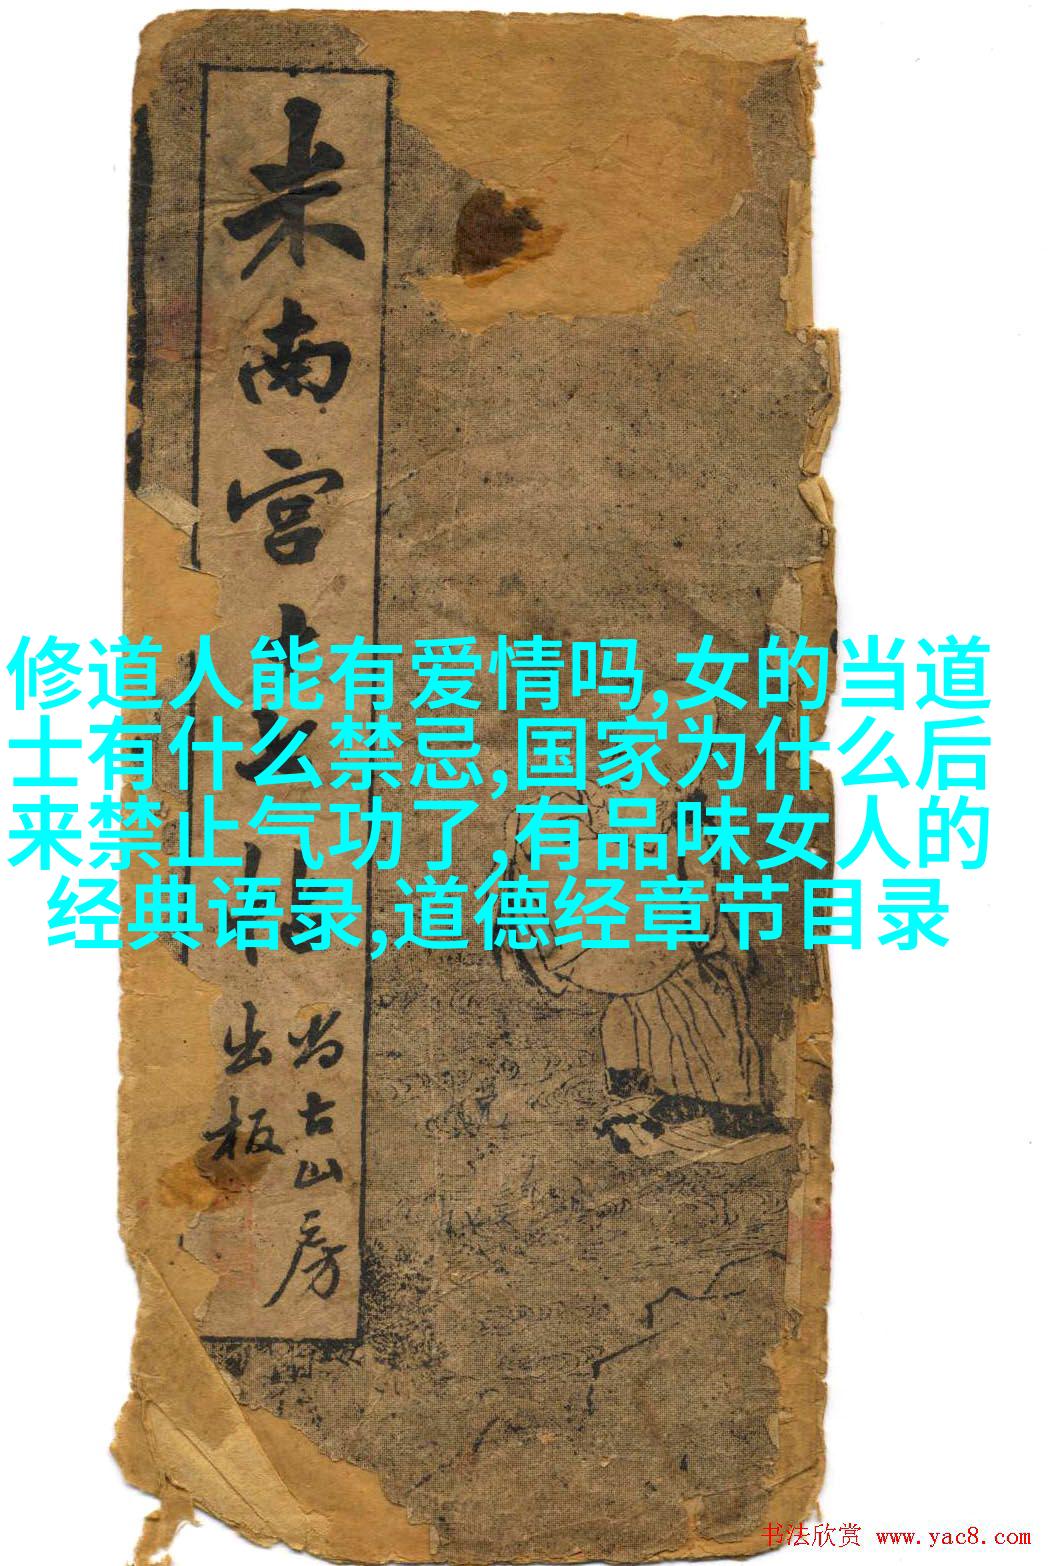 修道人能有爱情吗,女的当道
士有什么禁忌,国家为什么后
来禁止气功了,有品味女人的
经典语录,道德经章节目录
米南宫
尚古山房
出板
书法欣赏 www.yac8.com